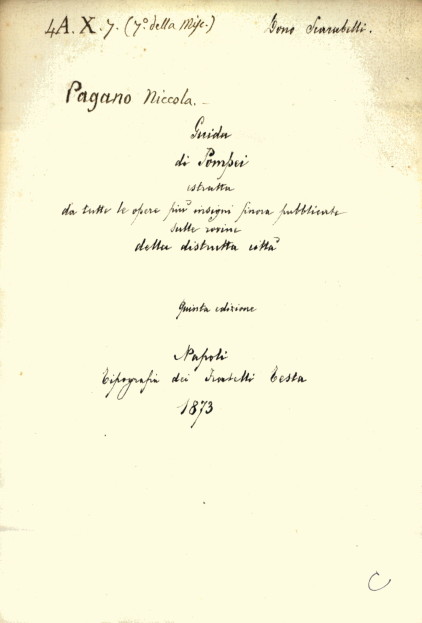 4A.X.7. (7º della Misc.) Dono Scarabelli.
Pagano Niccola. –
Guida
di Pompei
estratta
da tutte le opere più insigni finora pubblicate
sulle rovine
della distrutta città
Quinta edizione
Napoli
Tipografia dei Fratelli Testa
1873
C